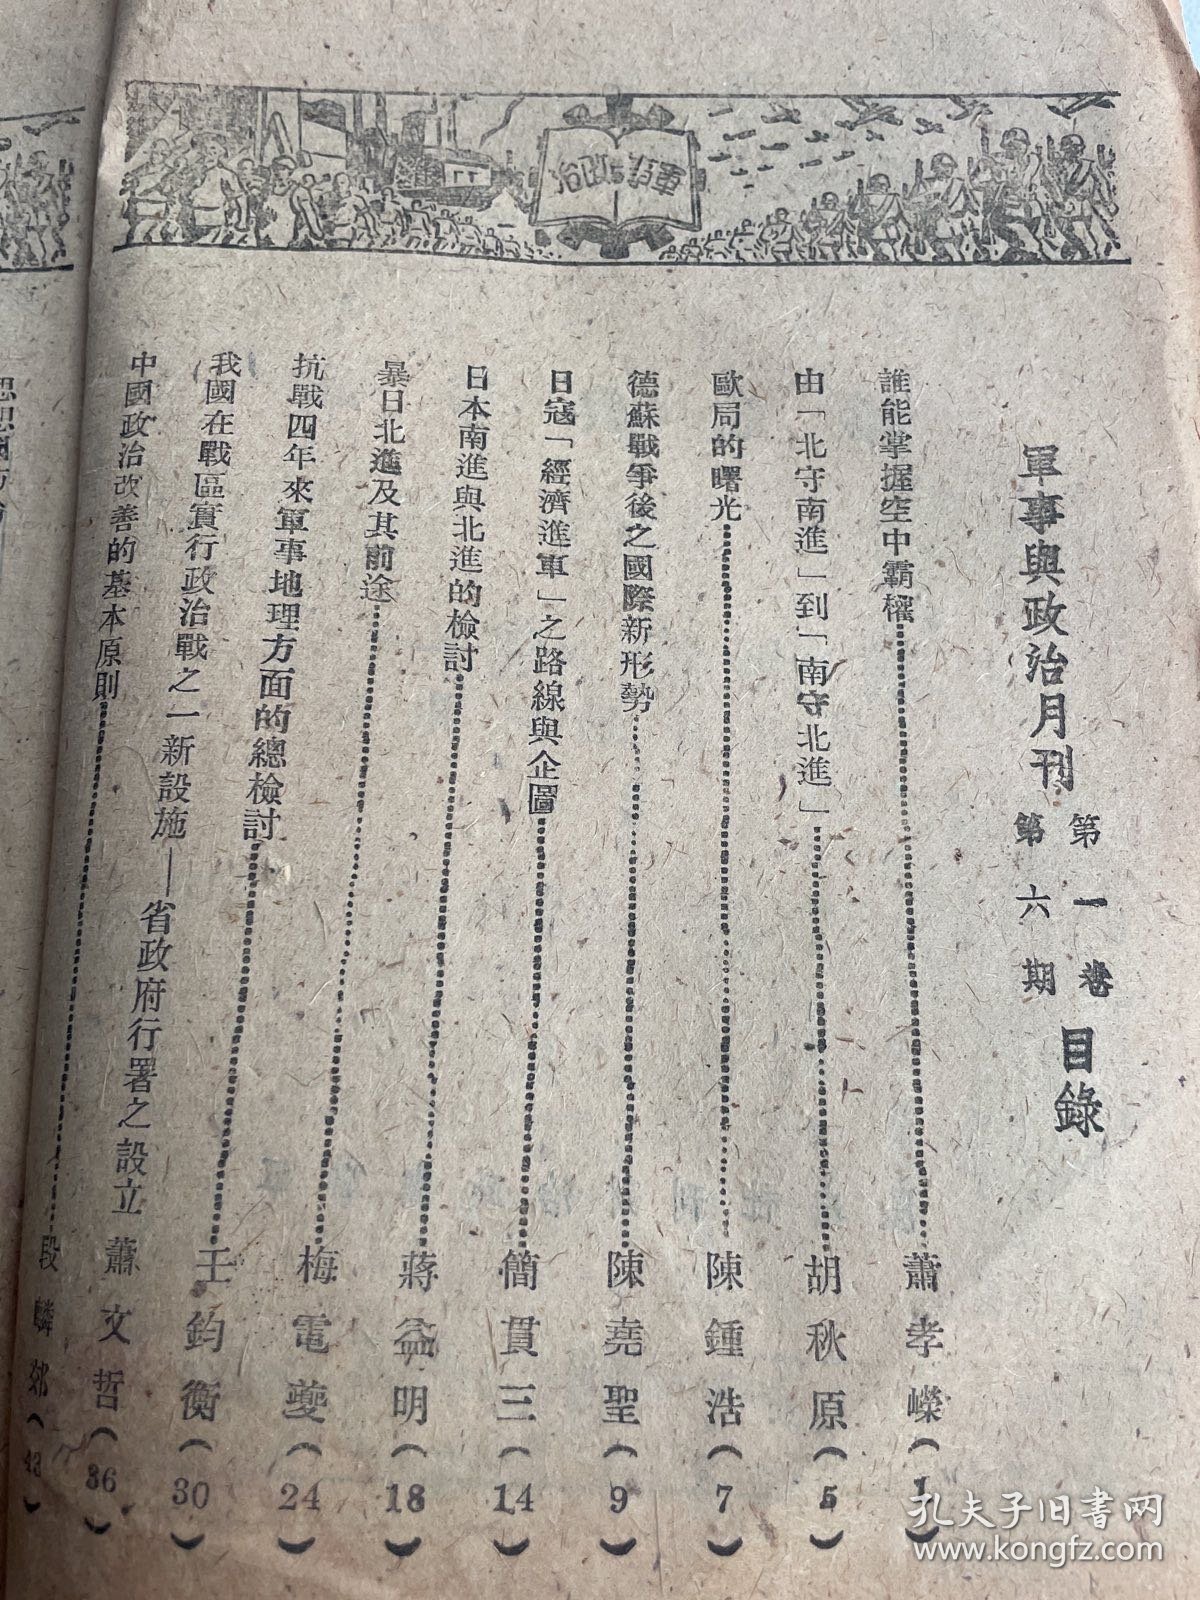 軍事與政治
軍事與政治月刊 第一卷 第六期 目錄
誰能掌握空中霸權 蕭孝嶸(1)
由「北守南進」到「南守北進」 胡秋原(5)
歐局的曙光 陳鍾浩(7)
德蘇戰爭後之國際新形勢 陳堯聖(9)
日寇「經濟進軍」之路線與企圖 簡貫三(14)
日本南進與北進的檢討 蔣益明(18)
暴日北進及其前途 梅電夔(24)
抗戰四年來軍事地理方面的總檢討 王鈞衡(30)
我國在戰區實行政治戰之一新設施——省政府行署之設立 蕭文哲(36)
中國政治改善的基本原則 段麟郊(43)
孔夫子旧书网
www.kongfz.com